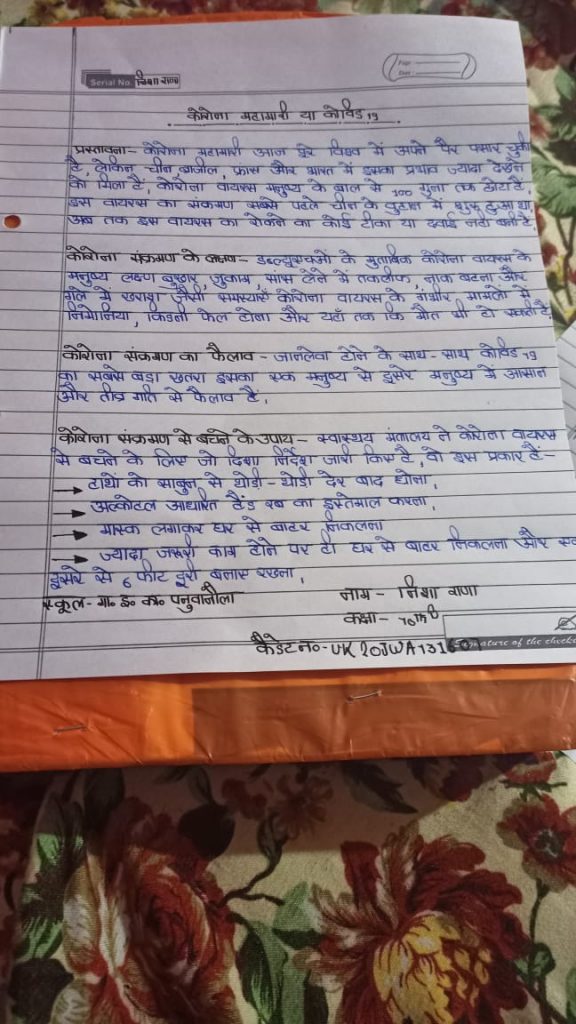 Serial No. निशा राणा
Page :
Date :
कोरोना महामारी या कोविड 19
प्रस्तावना- कोरोना महामारी आज पूरे विश्व में अपने पैर पसार चुकी
है, लेकिन चीन ब्राजील, फ्रांस और भारत में इसका प्रभाव ज्यादा देखने
को मिला है, कोरोना वायरस मनुष्य के बाल से 100 गुना तक छोटा है,
इस वायरस का संक्रमण सबसे पहले चीन के वुहान में शुरू हुआ था
अब तक इस वायरस को रोकने का कोई टीका या दवाई नही बनी है.
कोरोना संक्रमण के लक्षण - डब्ल्यूएचओ के मुताबिक कोरोना वायरस के
मनुष्य लक्षण बुखार, जुकाम, सांस लेने में तकलीफ, नाक बहना और
गले में खराश जैसी समस्याएँ कोरोना वायरस के गंभीर मामलो में
निमोनिया, किडनी फेल होना और यहाँ तक कि मौत भी हो सकती है.
कोरोना संक्रमण का फैलाव - जानलेवा होने के साथ - साथ कोविड 19
का सबसे बड़ा खतरा इसका एक मनुष्य से दूसरे मनुष्य में आसान
और तीव्र गति से फैलाव है,
कोरोना संक्रमण से बचने के उपाय - स्वास्थ्य मंत्रालय ने कोरोना वायरस
से बचने के लिए जो दिशा निर्देश जारी किए है, वो इस प्रकार है-
→ हाथों को साबुन से थोड़ी - थोड़ी देर बाद धोना,
→ अल्कोहल आधारित हैंड रब का इस्तेमाल करना,
→ मास्क लगाकर घर से बाहर निकलना
→ ज्यादा जरूरी काम होने पर ही घर से बाहर निकलना और एक
दूसरे से 6 फीट दूरी बनाए रखना,
स्कूल- रा० इ० का० पनुवानौला
नाम - निशा राणा
कक्षा - 10th
कैडेट न० - UK20JWA1316
Signature of the checke